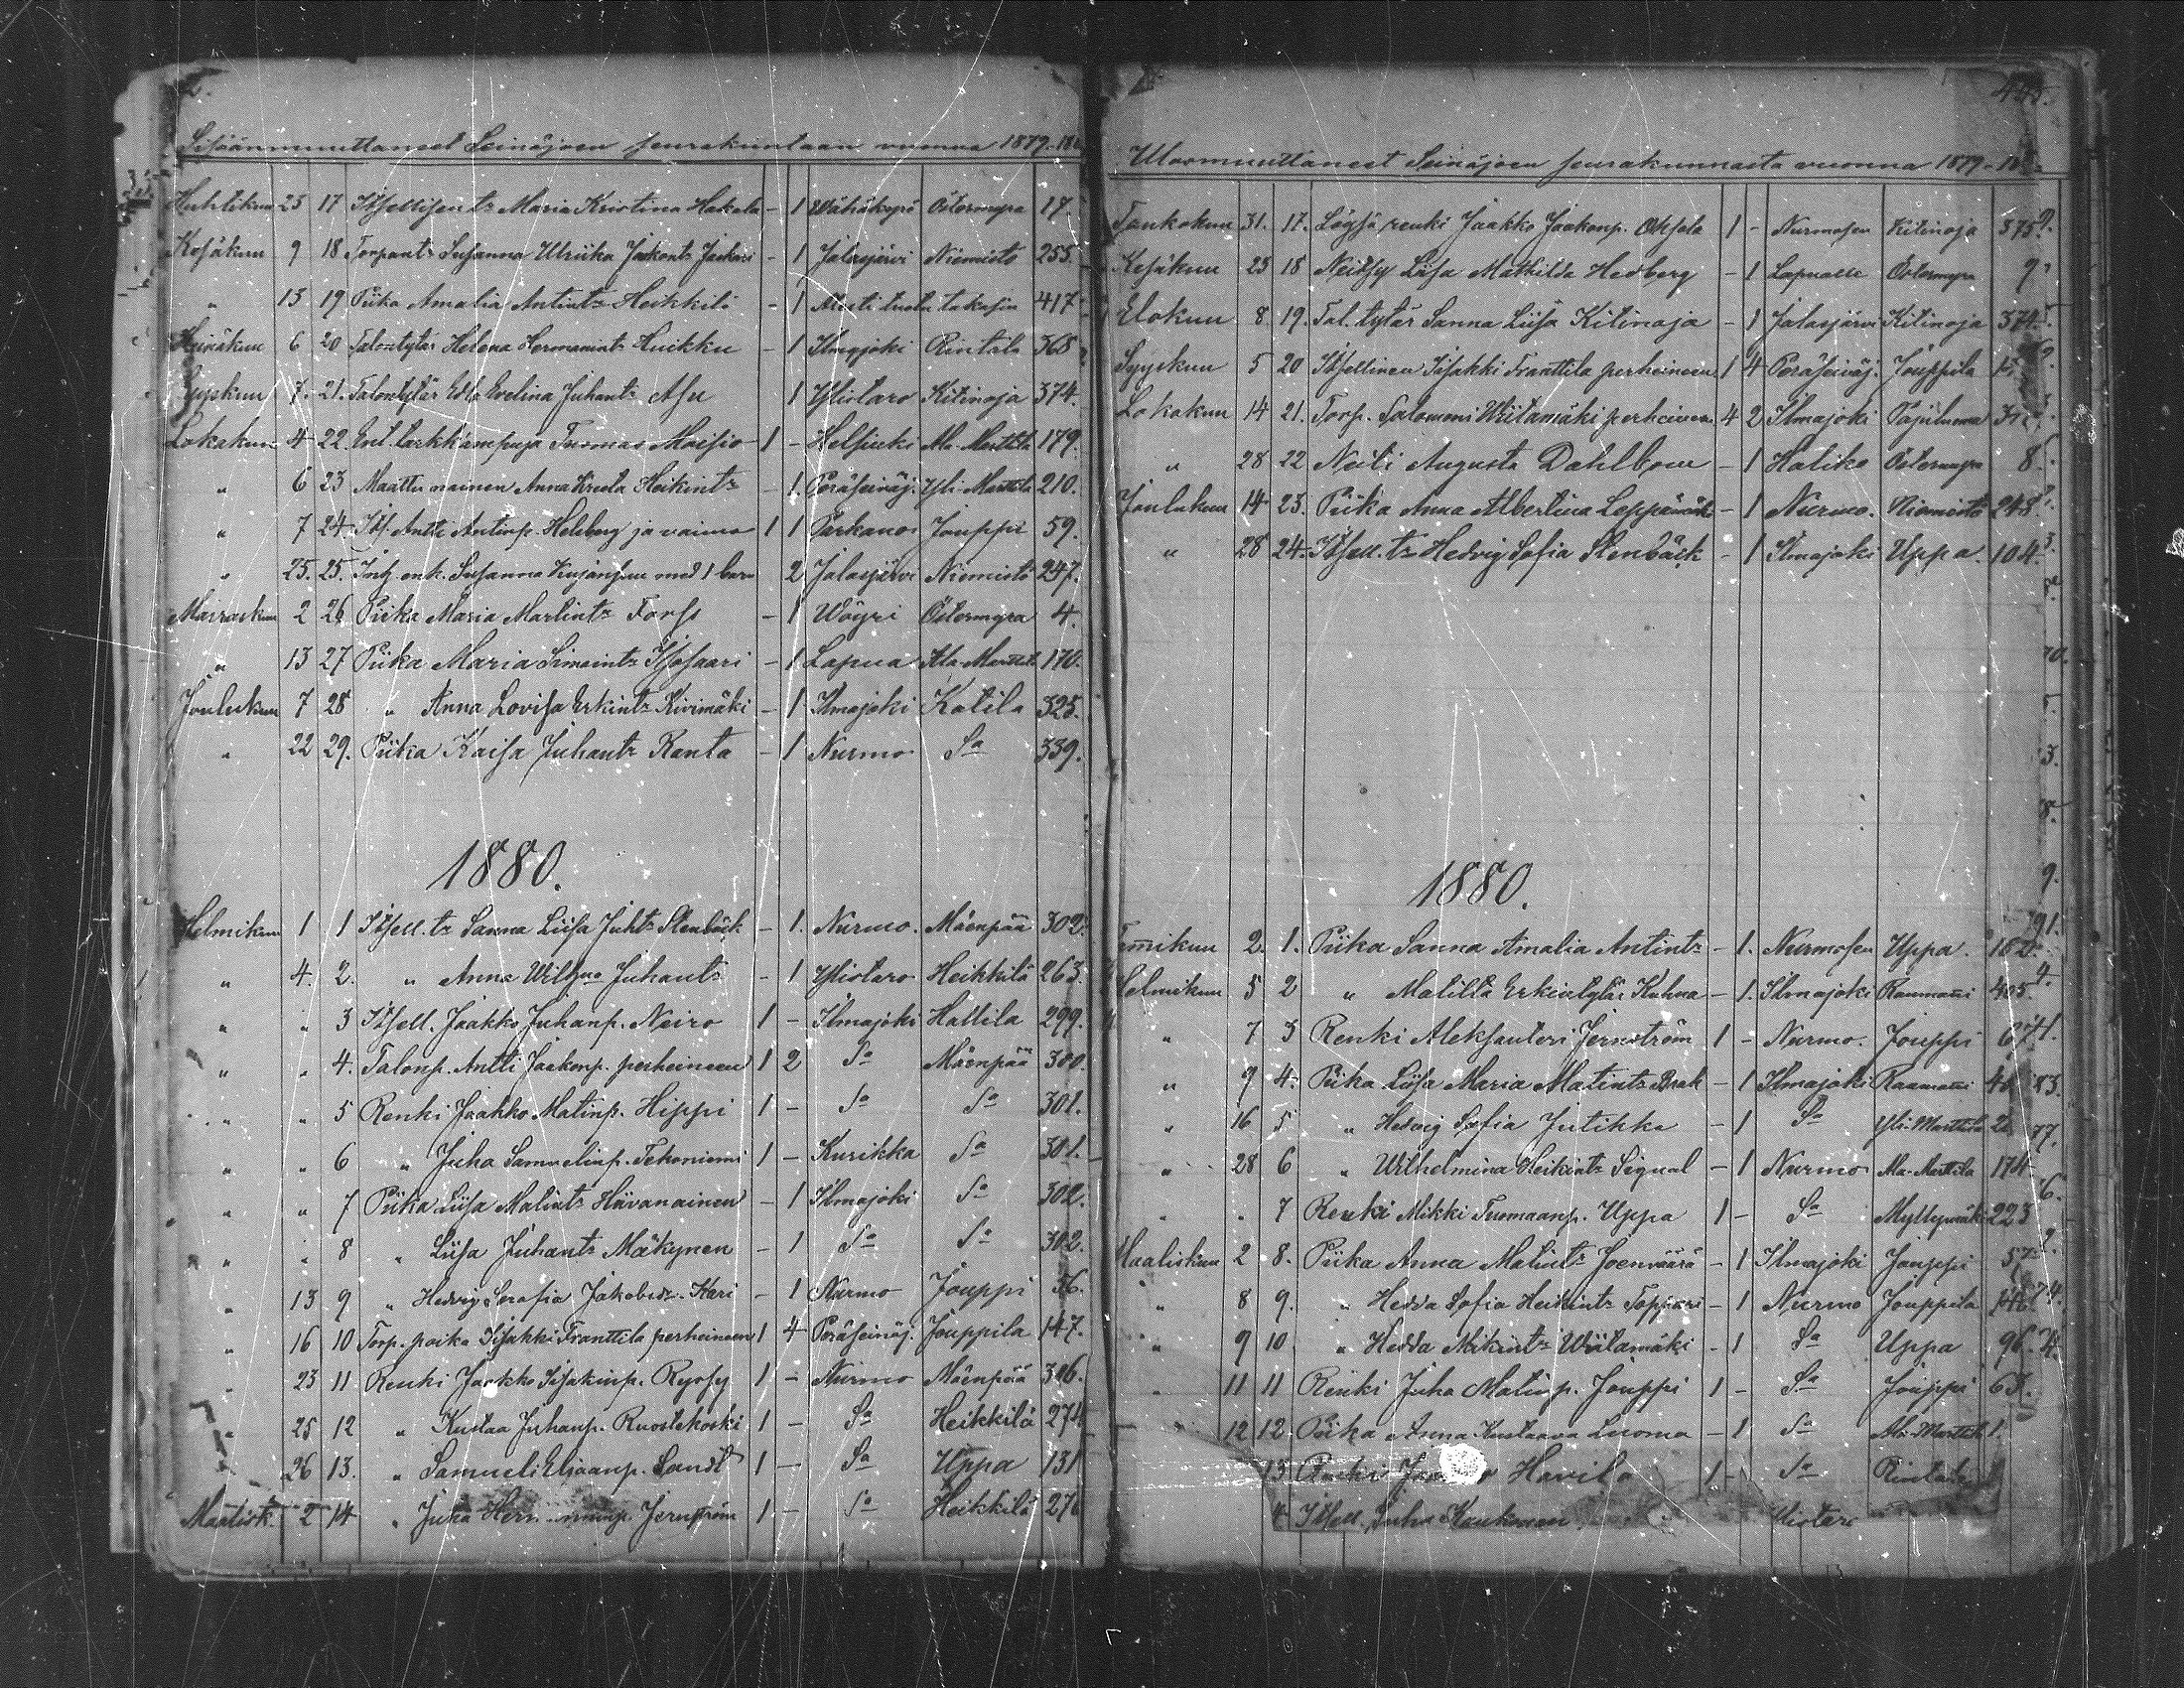 Sisäänmuuttaneet Seinäjoen seurakuntaan vuonna 1879-18
Huhtikuu 23 17 Itsellisen tr Maria Kristina Hakala - 1 Wähäkyrö Östermyra 17.
Kesäkuu 9 18 Torpant. Susanna Ulriika Jaakont. - 1 Jalasjärvi Niemistö 255.
" 13 19 Piika Amalia Antintr Heikkilä - 1 417
Heinäkuu 6 20 Talontytär Helena Hermanintr Huikku - 1 Ilmajoki Rintala 368
Syyskuu 7. 21. Talontytär Edla Evelina Juhantr Asu 1 Ylistaro Kitinoja 374.
Lokakuu 4 22. Ent. tarkk'ampuja Tuomas Maisio 1 - Helsinki Ala-Marttila 179.
" 6 23 Maattu nainen Anna Kreeta Heikintr - 1. Peräseinäj. Yli-Marttila 210.
" 7 24. Its. Antti Antinp. Helsberg ja vaimo 1 1 Parkanos Jouppi 59.
" 25. 25. Inh. enk. Susanna Kujanpuu med 1 barn 2 Jalasjärvi Niemistö 247.
Marraskuu 2 26 Piika Maria Martintr Forss - 1 Wöyri Östermyra 4.
" 13 27 Piika Maria Simointr Isosaari - 1 Lapua Ala-Marttila 170.
Joulukuu 7 28 " Anna Lovisa Erkintr Kivimäki - 1 Ilmajoki Katila 325.
" 22 29. Piika Kaisa Juhantr Ranta - 1 Nurmo Sa 339.
1880.
Helmikuu 1 1 Itsell. tr Sanna Liisa Juhtr Stenbäck - 1. Nurmo. Mäenpää 302.
" 4. 2. " Anna Wilhna Juhantr - 1 Ylistaro Heikkilä 263.
" " 3 Itsell. Jaakko Juhanp. Neiro 1 - Ilmajoki Hallila 299.
" " 4. Talonp. Antti Jaakonp. perheineen 1 2 Sa Mäenpää 300.
" " 5 Renki Jaakko Matinp. Hippi 1 - Sa Sa 301.
" " 6 " Juha Samuelinp. Tekoniemi 1 - Kurikka Sa 301.
" " 7 Piika Liisa Matintr Hävanainen - 1 Ilmajoki Sa 302.
" " 8 " Liisa Juhantr Mäkynen - 1 Sa Sa 302.
" 13 9 " Hedvig Serafia Jakobsdr. Kari - 1 Nurmo Jouppi 56.
" 16 10 Torp. poika Iisakki Franttila perheineen 1 4 Peräseinäj. Jouppila 147.
" 23 11 Renki Jaakko Iisakinp. Ryssy 1 - Nurmo Mäenpää 306.
" 25 12 " Kustaa Juhanp. Ruostekoski 1 - Sa Heikkilä 274
" 26 13. " Samueli Eljaanp. Sandt 1 - Sa Uppa 131
Maalisk. 2 14 " Juha Jernström 1 - Sa Heikkilä 276
445.
Ulosmuuttaneet Seinäjoen seurakunnasta vuonna 1879-18
Toukokuu 31. 17. Löysä renki Jaakko Jaakonp. Oksala 1 - Nurmosen Kitinoja 375
Kesäkuu 23 18 Neitsy Liisa Mathilda Hedberg - 1 Lapualle Östermyra 9
Elokuu 8 19. Tal. tytär Sanna Liisa Kitinoja - 1 Jalasjärvi Kitinoja 374.
Syyskuu 5 20 Itsellinen Iisakki Franttila perheineen 1 4 Peräseinäj. Jouppila
Lokakuu 14 21. Torp. Salomoni Wiitamäki perheineen 4 2 Ilmajoki Pajuluoma
" 28 22 Neiti Augusta Dahlbom - 1 Haliko Östermyra 8
Joulukuu 14 23. Piika Anna Albertina Leppämäki - 1 Nurmo. Niemistö 248
" 28 24. Itsell. tr Hedvig Sofia Stenbäck - 1 Ilmajoki Uppa. 104.
1880.
Tammikuu 2. 1. Piika Sanna Amalia Antintr - 1. Nurmosen Uppa.
Helmikuu 5 2 " Matilta Erkintytär Kuhna - 1. Ilmajoki Raumanni 405.
" 7 3 Renki Aleksanteri Jernström 1 - Nurmo. Jouppi
" 9 4. Piika Liisa Maria Matintr Brak - 1 Ilmajoki Raumanni
" 16 5 " Hedvig Sofia Jutikka - 1 Sa Yli-Marttila
" 28 6 " Wilhelmina Heikintr Signal - 1 Nurmo Ala-Marttila 174
" " 7 Renki Mikki Tuomaanp. Uppa 1 - Sa Myllymäki 223
Maaliskuu 2 8. Piika Anna Matintr Joenväärä - 1 Ilmajoki Jouppi 57
" 8 9. " Hedda Sofia Heikintr Toppari - 1 Nurmo Jouppila
" 9 10 " Hedda Mikintr Wiitamäki - 1 Sa Uppa 96
" 11 11 Renki Juha Matinp. Jouppi 1 - Sa Jouppi 63.
" 12 12 Piika Anna Kustaava Luoma - 1 Sa Ala-Marttila
13 Renki Havila 1 - Sa Rintala
Itsell. Juha Kaukonen